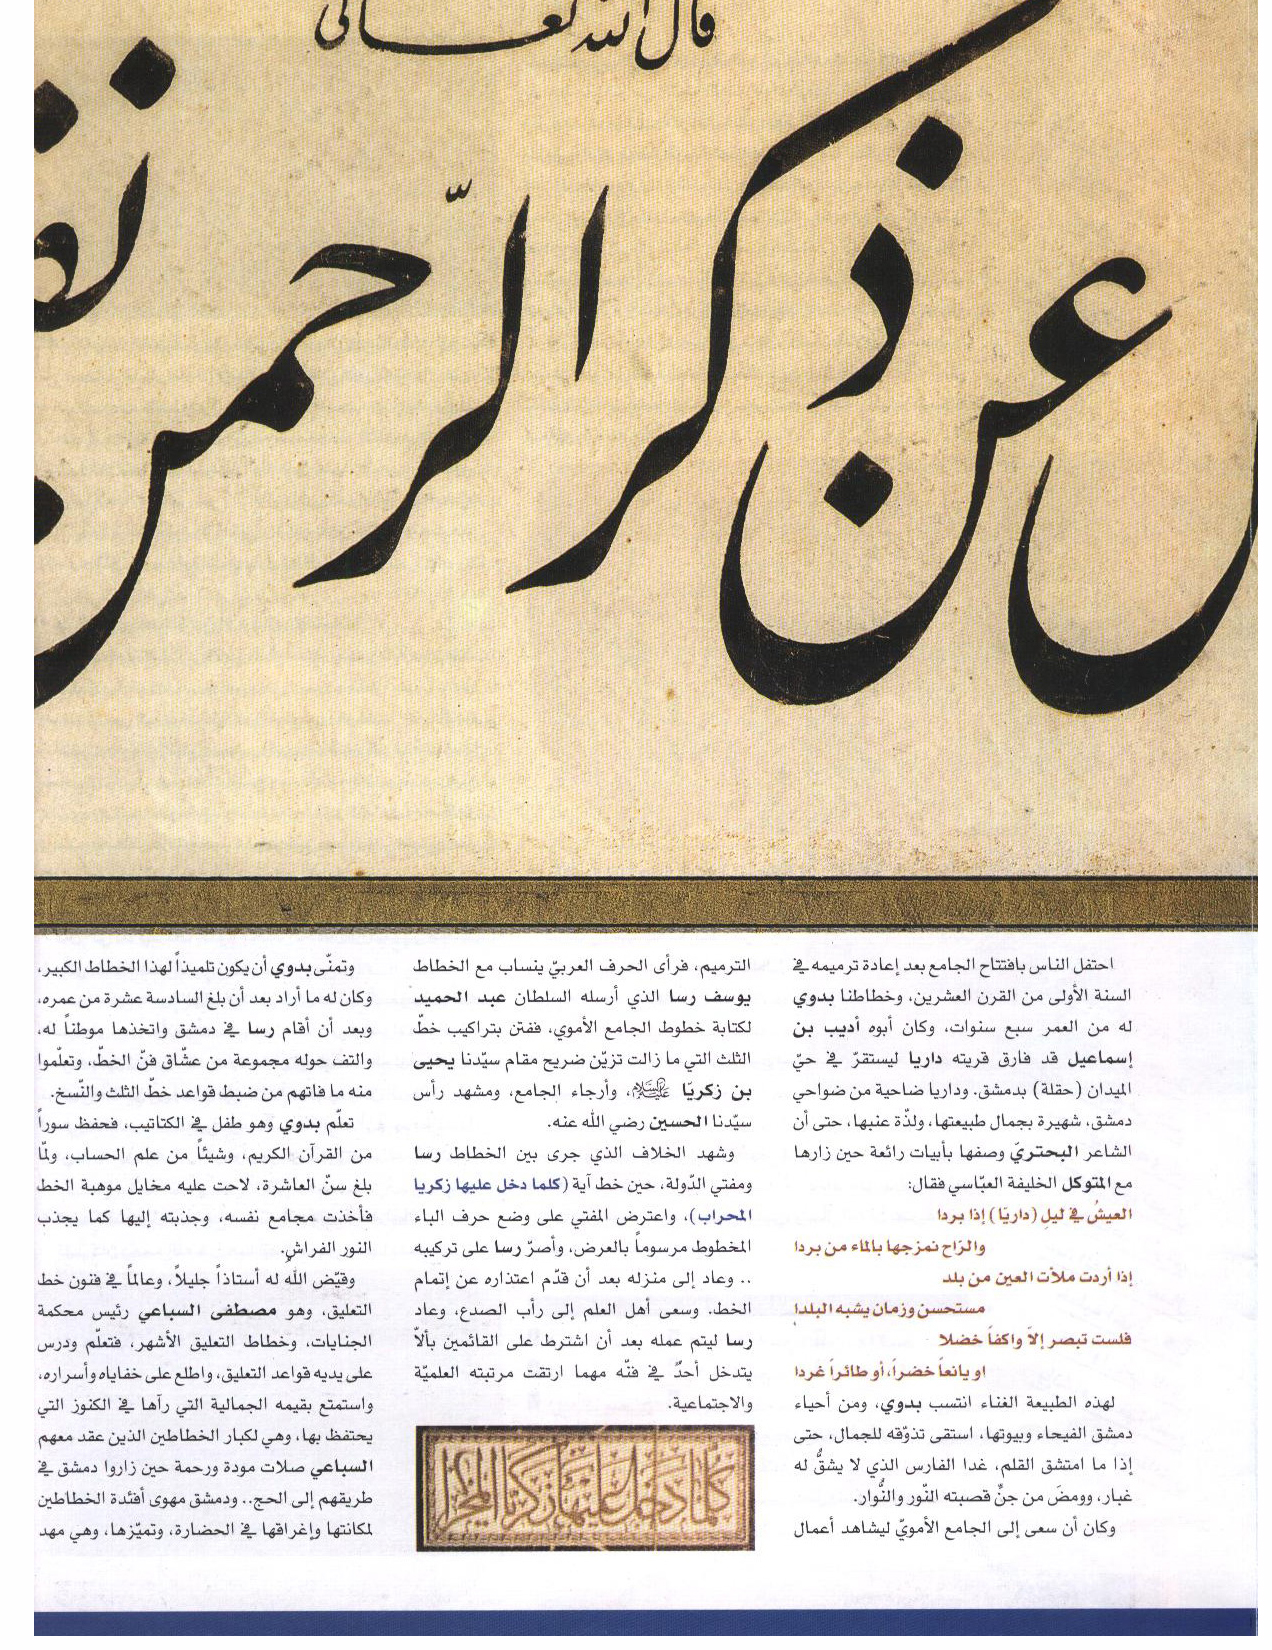 قال الله تعالى
عن ذكر الرحمن
احتفل الناس بافتتاح الجامع بعد إعادة ترميمه في
السنة الأولى من القرن العشرين، وخطاطنا بدوي
له من العمر سبع سنوات، وكان أبوه أديب بن
إسماعيل قد فارق قريته داريا ليستقرّ في حيّ
الميدان (حقلة) بدمشق. وداريا ضاحية من ضواحي
دمشق، شهيرة بجمال طبيعتها، ولذّة عنبها، حتى أن
الشاعر البحتريّ وصفها بأبيات رائعة حين زارها
مع المتوكل الخليفة العبّاسي فقال:
العيشُ في ليلِ (داريّا) إذا بردا
والرّاح نمزجها بالماء من بردا
إذا أردت ملأت العين من بلد
مستحسن وزمان يشبه البلدا
فلست تبصر إلاّ واكفاً خضلا
او يانعاً خضراً، أو طائراً غردا
لهذه الطبيعة الغناء انتسب بدوي، ومن أحياء
دمشق الفيحاء وبيوتها، استقى تذوّقه للجمال، حتى
إذا ما امتشق القلم، غدا الفارس الذي لا يشقُّ له
غبار، وومضَ من جنِّ قصبته النّور والنُّوار.
وكان أن سعى إلى الجامع الأمويّ ليشاهد أعمال
الترميم، فرأى الحرف العربيّ ينساب مع الخطاط
يوسف رسا الذي أرسله السلطان عبد الحميد
لكتابة خطوط الجامع الأموي، ففتن بتراكيب خطّ
الثلث التي ما زالت تزيّن ضريح مقام سيّدنا يحيى
بن زكريّا عليه السلام، وأرجاء الجامع، ومشهد رأس
سيّدنا الحسين رضي الله عنه.
وشهد الخلاف الذي جرى بين الخطاط رسا
ومفتي الدّولة، حين خط آية (كلما دخل عليها زكريا
المحراب)، واعترض المفتي على وضع حرف الباء
المخطوط مرسوماً بالعرض، وأصرّ رسا على تركيبه
.. وعاد إلى منزله بعد أن قدّم اعتذاره عن إتمام
الخط. وسعى أهل العلم إلى رأب الصدع، وعاد
رسا ليتم عمله بعد أن اشترط على القائمين بألاّ
يتدخل أحدٌ في فنّه مهما ارتقت مرتبته العلميّة
والاجتماعية.
كلما دخل عليها زكريا المحراب
وتمنّى بدوي أن يكون تلميذاً لهذا الخطاط الكبير،
وكان له ما أراد بعد أن بلغ السادسة عشرة من عمره،
وبعد أن أقام رسا في دمشق واتخذها موطناً له،
والتف حوله مجموعة من عشّاق فنّ الخطّ، وتعلّموا
منه ما فاتهم من ضبط قواعد خطّ الثلث والنّسخ.
تعلّم بدوي وهو طفل في الكتاتيب، فحفظ سوراً
من القرآن الكريم، وشيئاً من علم الحساب، ولمّا
بلغ سنّ العاشرة، لاحت عليه مخايل موهبة الخط
فأخذت مجامع نفسه، وجذبته إليها كما يجذب
النور الفراشِ.
وقيّض اللّه له أستاذاً جليلاً، وعالماً في فنون خط
التعليق، وهو مصطفى السباعي رئيس محكمة
الجنايات، وخطاط التعليق الأشهر، فتعلّم ودرس
على يديه قواعد التعليق، واطلع على خفاياه وأسراره،
واستمتع بقيمه الجمالية التي رآها في الكنوز التي
يحتفظ بها، وهي لكبار الخطاطين الذين عقد معهم
السباعي صلات مودة ورحمة حين زاروا دمشق في
طريقهم إلى الحج.. ودمشق مهوى أفئدة الخطاطين
لمكانتها وإغراقها في الحضارة، وتميّزها، وهي مهد